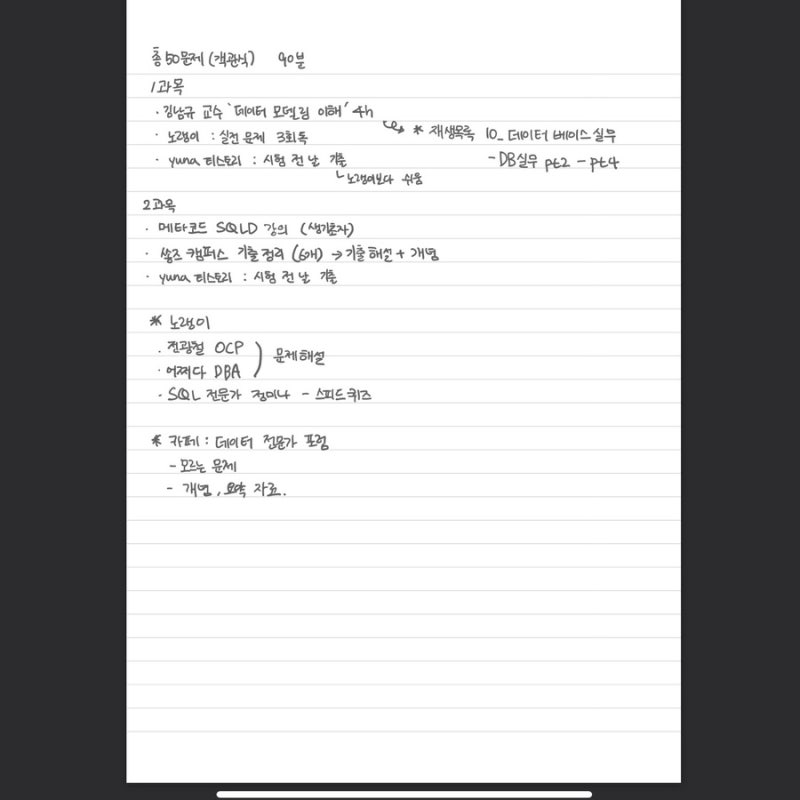 총 50문제 (객관식) 90분
1과목
· 김남규 교수 '데이터 모델링 이해' 4h
* 재생목록 10_데이터 베이스 실무
· 노랭이 : 실전 문제 3회독
- DB실무 pt2 - pt4
· yuna 티스토리 : 시험 전 날 기출
ㄴ노랭이보다 쉬움
2과목
· 메타코드 SQLD 강의 (생기초자)
· 쏭즈 캠퍼스 기출 정리 (6개) → 기출 해설 + 개념
· yuna 티스토리 : 시험 전 날 기출
* 노랭이
· 전광철 OCP
문제해설
· 어쩌다 DBA
· SQL 전문가 정미나 - 스피드 퀴즈
* 카페 : 데이터 전문가 포럼
- 모르는 문제
- 개념, 요약 자료.